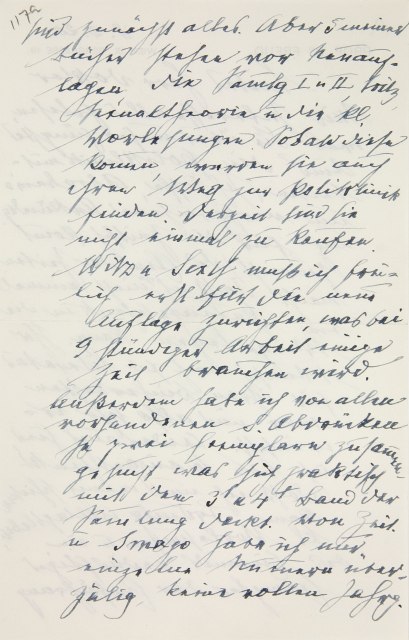 117a
sind zunächst alles. Aber 5 meiner
Bücher stehen vor Neuauf-
lagen, die Samlg I u II, Witz,
Sexualtheorie u die kl.
Vorlesungen. Sobald diese
kommen, werden sie auch
ihren Weg zur Poliklinik
finden. Derzeit sind sie
nicht einmal zu kaufen.
Witz u Sexth muß ich frei-
lich erst für die neue
Auflage zurichten, was bei
9 stündiger Arbeit einige
Zeit brauchen wird.
Außerdem habe ich von allen
vorhandenen S. Abdrücken
je zwei Exemplare zusammen-
gesucht was sich praktisch
mit dem 3t u 4t Band der
Samlung deckt. Von Zeit.
u Imago habe ich nur
einzelne Numern über-
zälig keine vollen Jahrg.